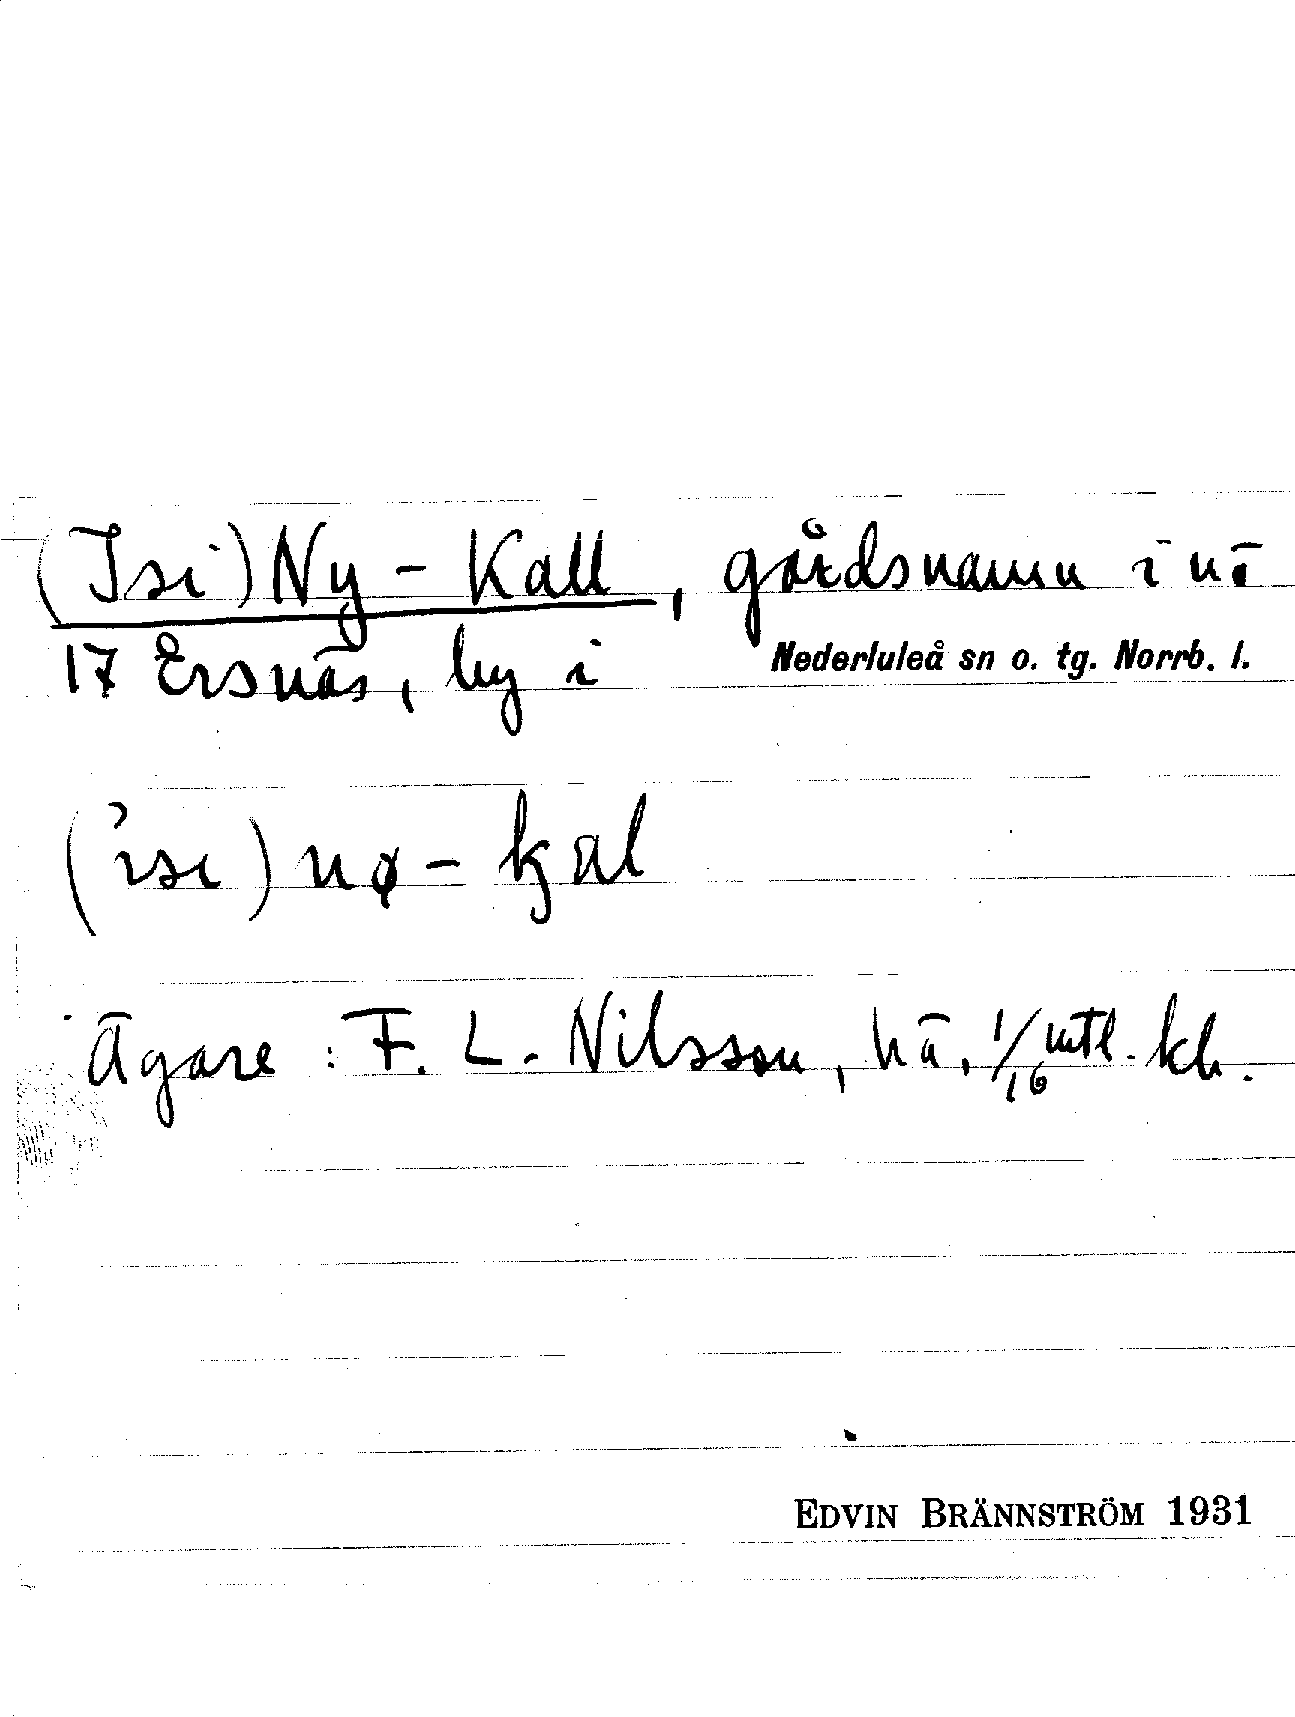 (Isi) Ny - Kall, gårdsnamn i nä
17 Ersnäs, by i Nederluleå sn o. tg. Norrb. l.
(ɩsɩ) nø - kal
Ägare : F. L. Nilsson, nä, 1/16 mtl. kh.
EDVIN BRÄNNSTRÖM 1931